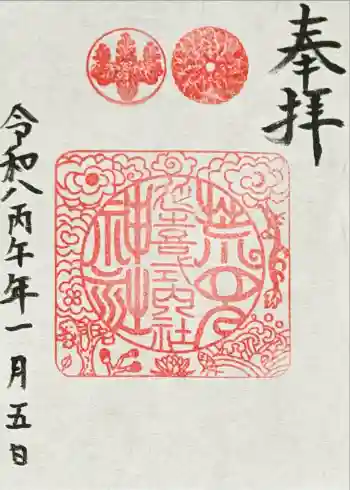 奉拝
荒見
延喜式内社
神社
令和八丙午年一月五日